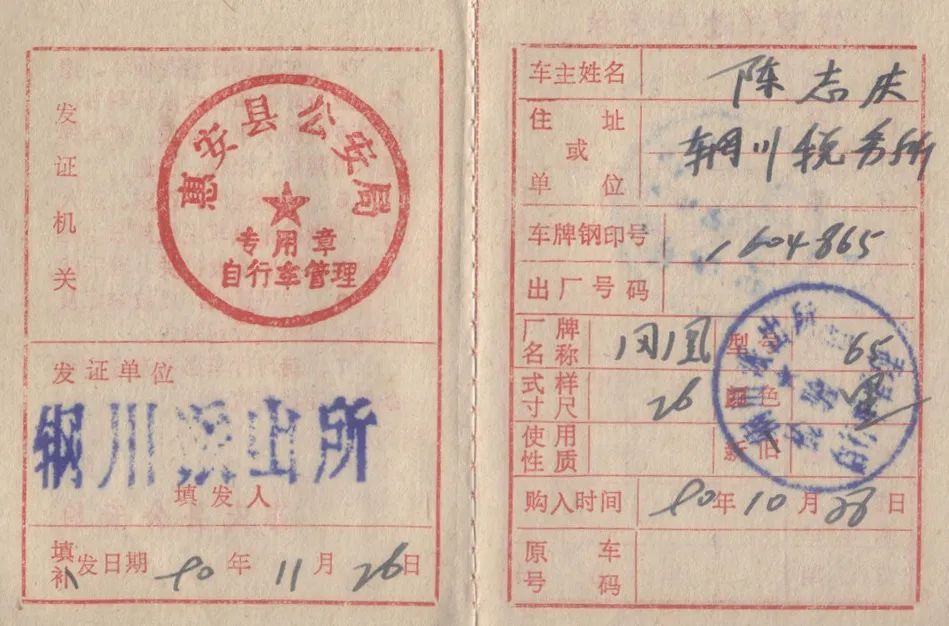 发证机关
惠安县公安局
专用章
自行车管理
发证单位
辋川派出所
填发人
填补发日期 90年11月26日
车主姓名 陈志庆
住址或单位 辋川税务所
车牌钢印号 1604865
出厂号码
厂牌名称 凤凰 型号 65
式样尺寸 26 颜色 黑
使用性质 新旧
购入时间 90年10月28日
原车号码